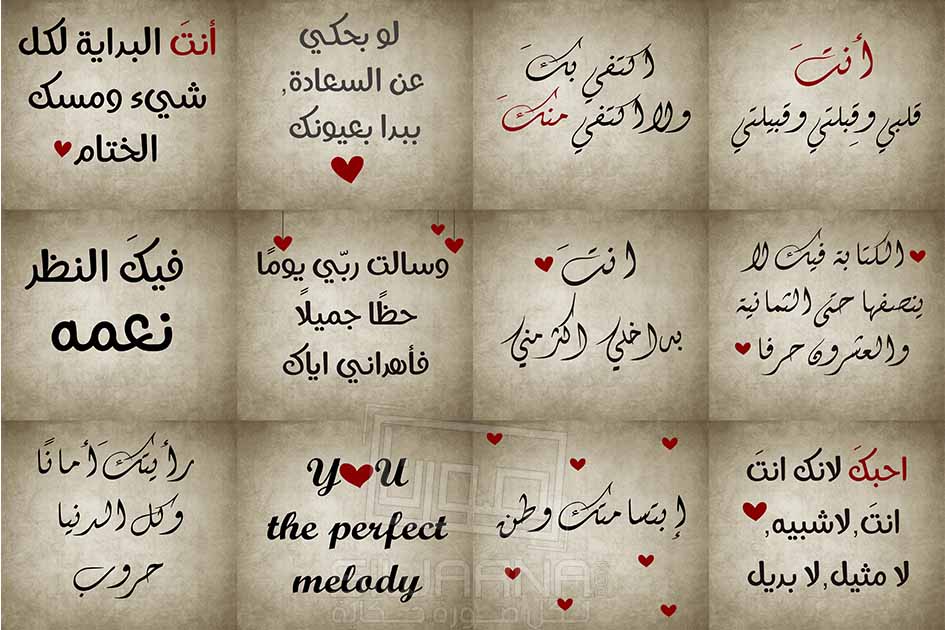 أنتَ
قلبي وقِبلتي وقبيلتي
اكتفي بكَ
ولا اكتفي منكَ
لو بحكي
عن السعادة,
ببدا بعيونك
أنتَ البداية لكل
شيء ومسك
الختام
الكتابة فيك لا
ينصفها حتى الثمانية
والعشرون حرفا
انتَ
بداخلي اكثر مني
وسالت ربّي يومًا
حظًا جميلًا
فأهداني اياك
فيكَ النظر
نعمه
احبكَ لانك انتَ
انتَ,لاشبيه,
لا مثيل,لا بديل
إبتسامتك وطن
YOU
the perfect
melody
رأيتكَ أمانًا
وكل الدنيا
حروب
لكل صورة حكاية